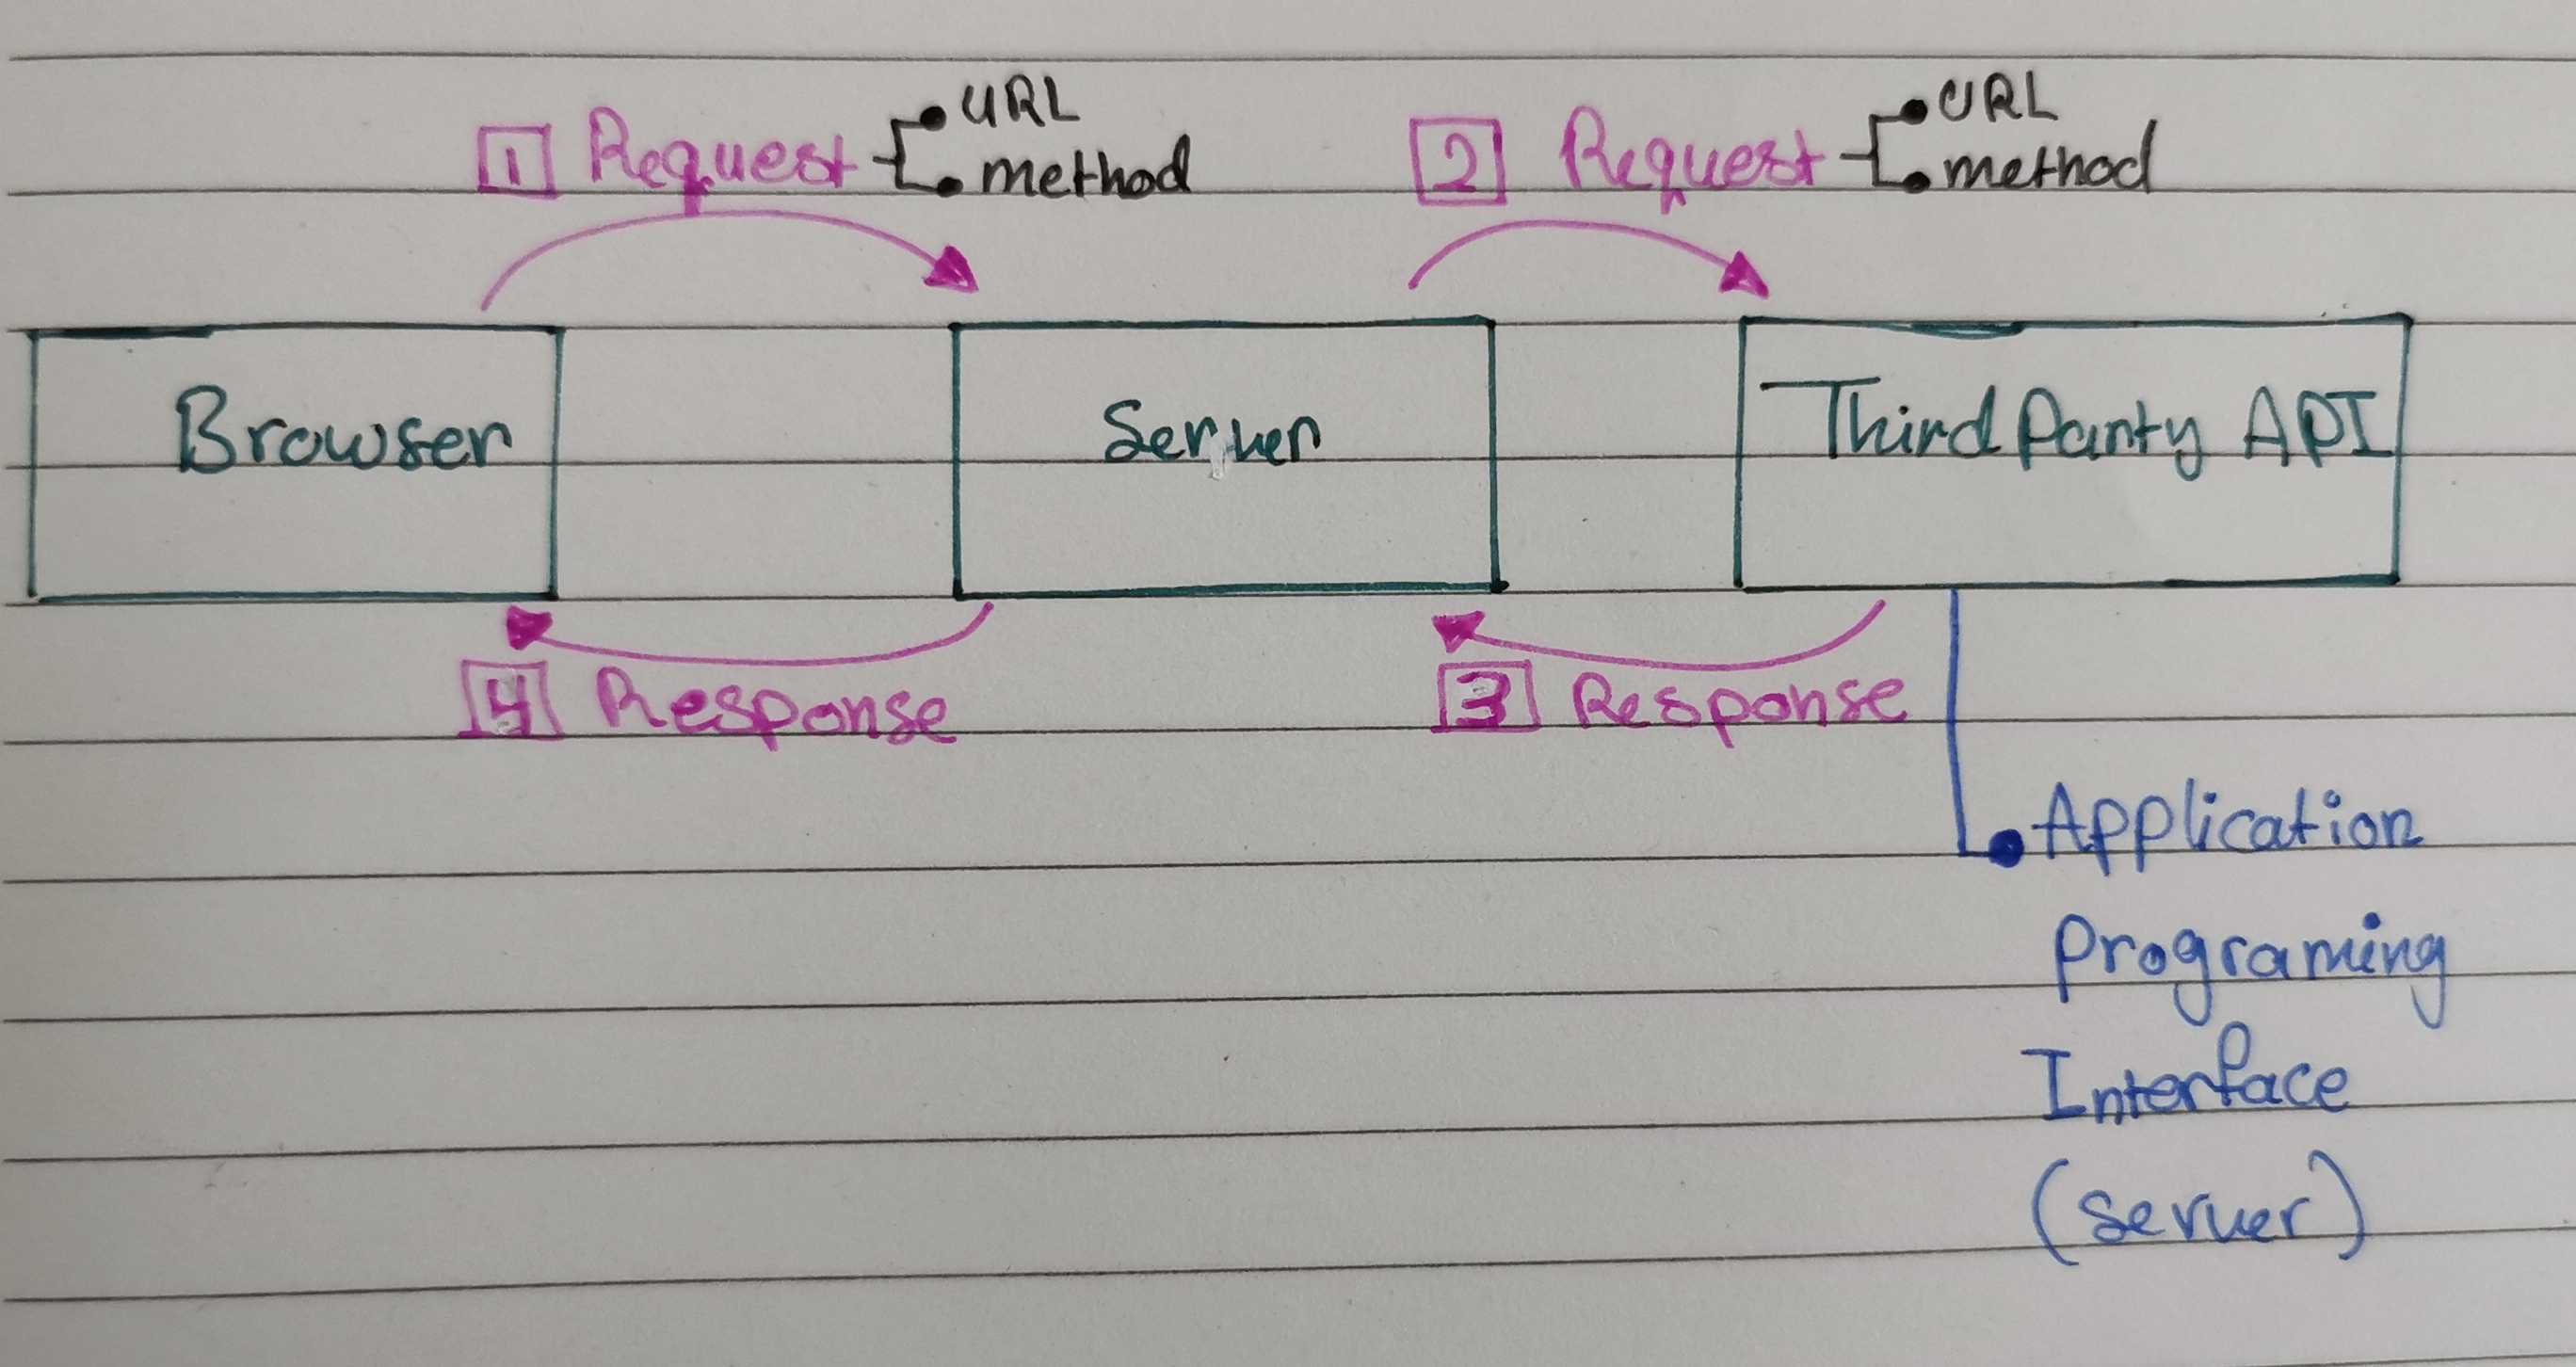 1 Request
URL
method
2 Request
URL
method
Browser
Server
Third Party API
4 Response
3 Response
Application
Programing
Interface
(server)